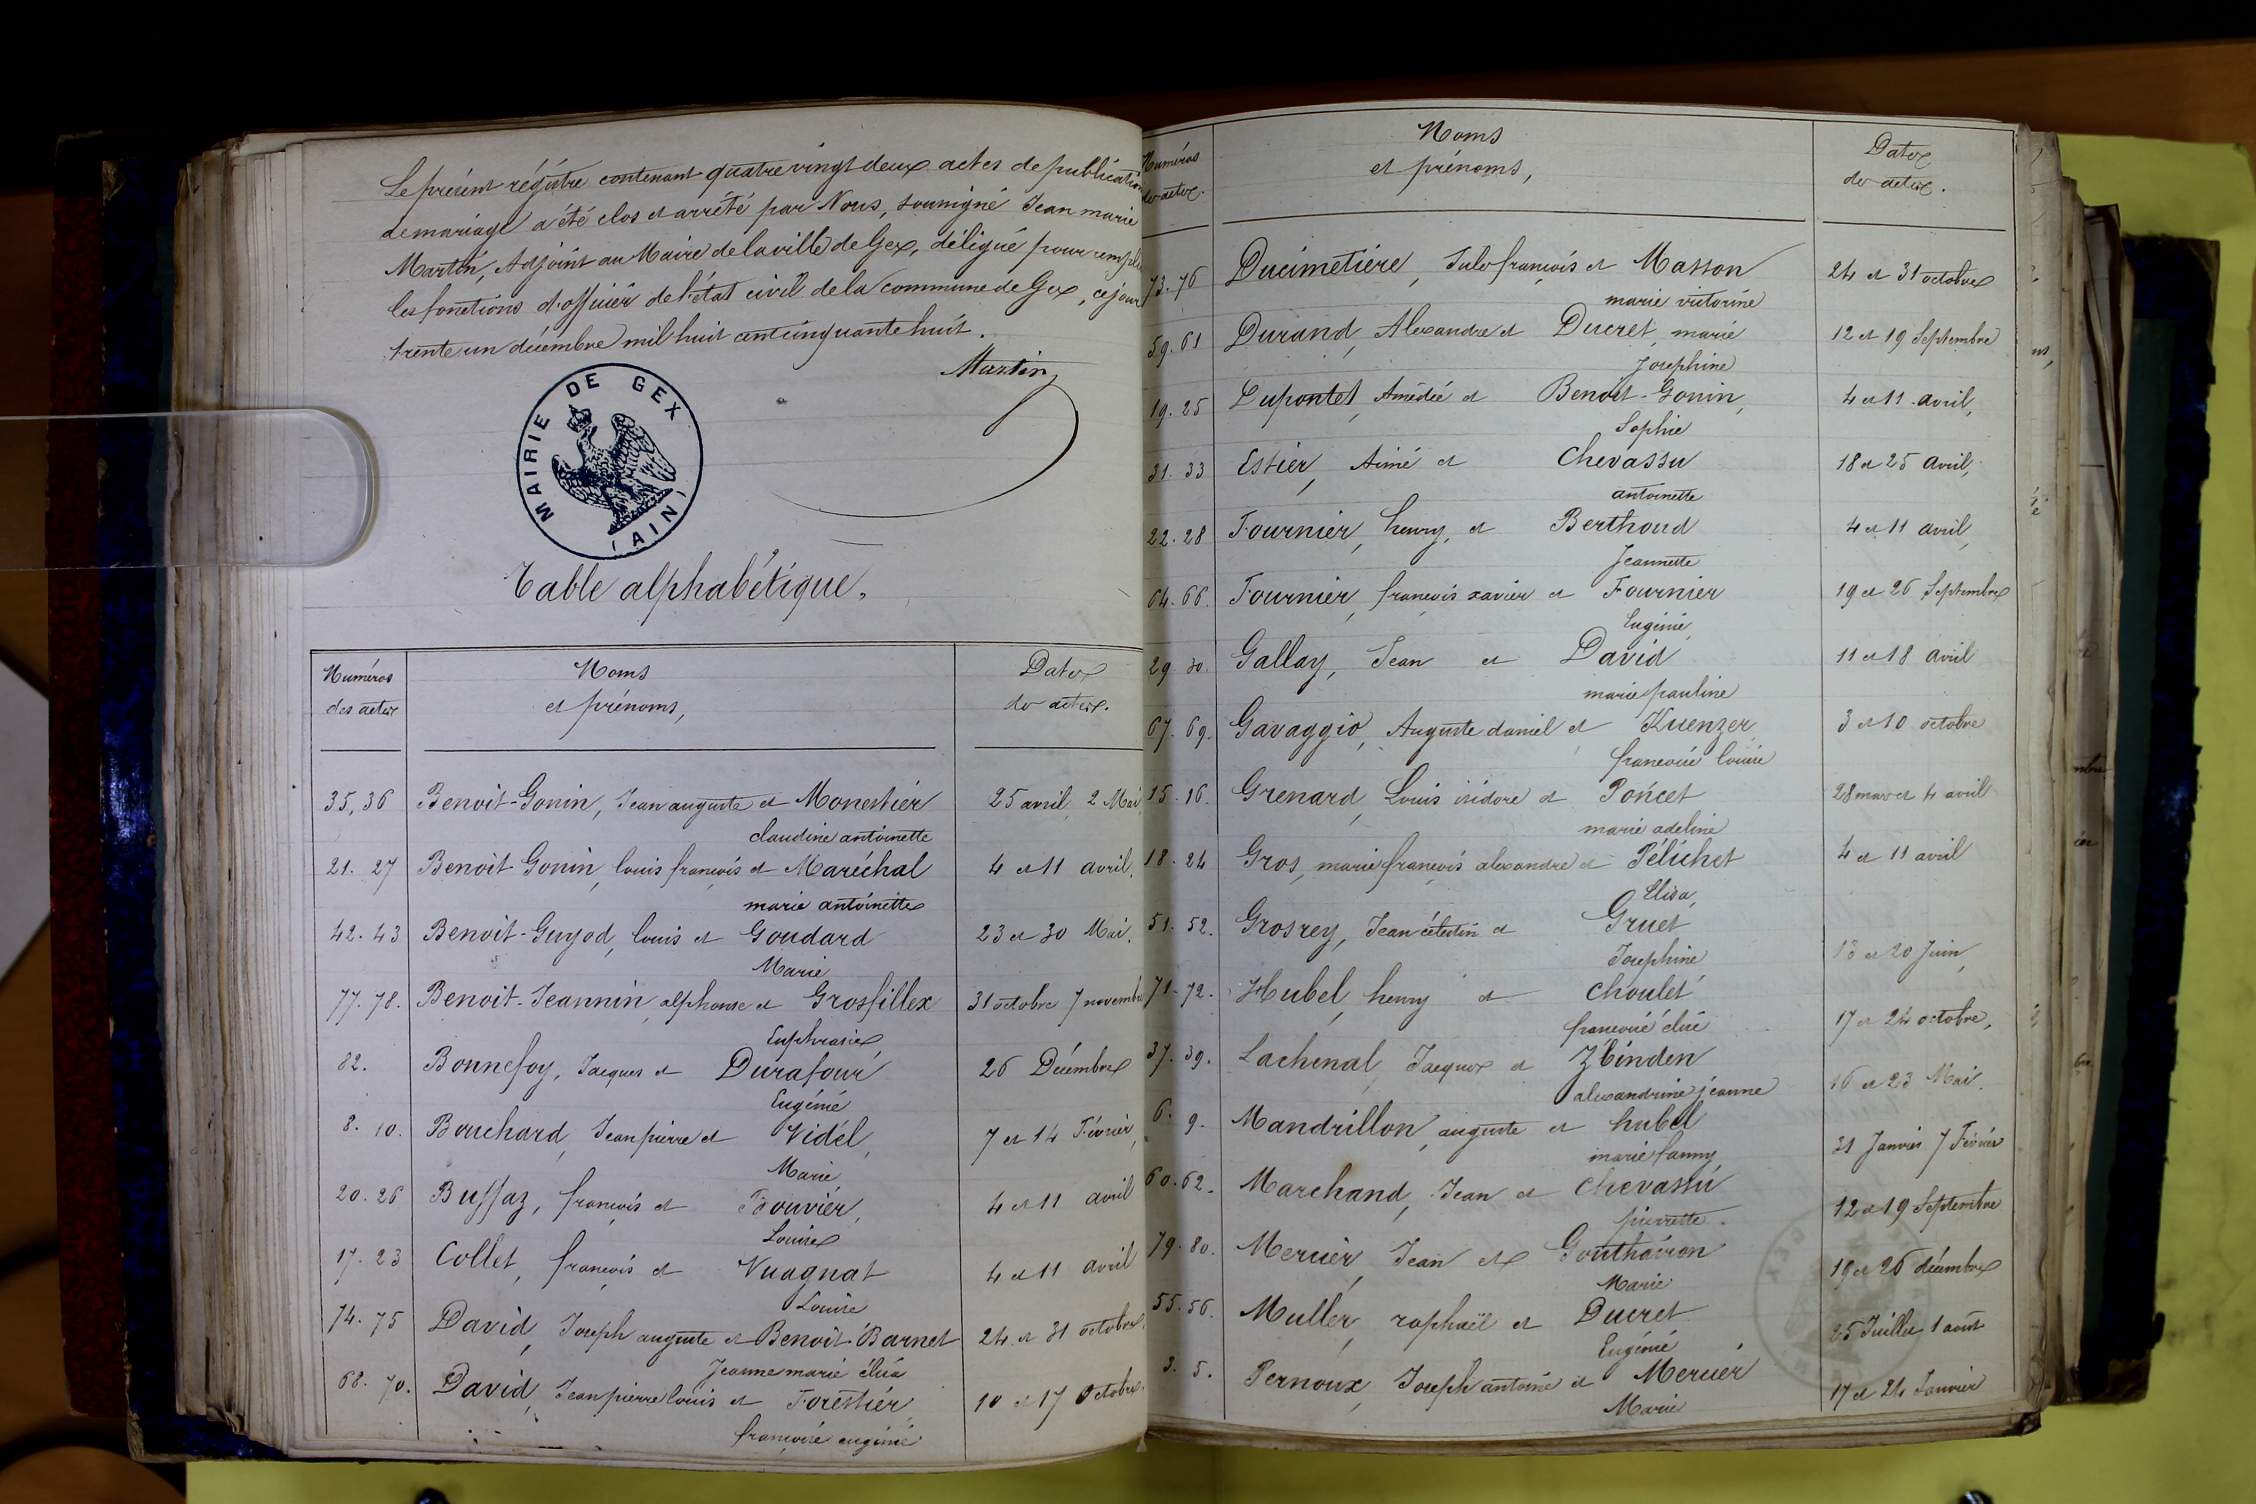 Le présent régistre contenant quatre vingt deux actes de publication
de mariage a été clos et arrêté par Nous, soussigné Jean marie
Martin, Adjoint au Maire de la ville de Gex, délégué pour remplir
les fonctions d'officier de l'état civil de la commune de Gex, ce jour
trente un décembre mil huit cent cinquante huit.
Martin
MAIRIE DE GEX
(AIN)
Table alphabétique.
Numéros des actes
Noms et prénoms,
Dates des actes.
35, 36 Benoit-Gonin, Jean auguste et Monestier 25 avril, 2 Mai
claudine antoinette
21. 27 Benoit-Gonin, louis françois et Maréchal 4 et 11 avril.
marie antoinette
42. 43 Benoit-Guyod, louis et Goudard 23 et 30 Mai.
Marie
77. 78. Benoit-Jeannin, alphonse et Grosfillex 31 octobre 7 novembre
Euphrasie
82. Bonnefoy, Jacques et Durafour 26 Décembre
Eugénie
8. 10. Bouchard, Jean pierre et Vidél, 7 et 14 Février,
Marie,
20. 26 Buffaz, françois et Bouvier, 4 et 11 avril
Louise
17. 23 Collet, françois et Vuagnat 4 et 11 avril
Louise
74. 75 David, Joseph auguste et Benoit-Barnet 24 et 31 octobre.
Jeanne marie élisa
68. 70. David, Jean pierre louis et Forestier 10 et 17 Octobre.
françoise eugénie
Numéros des actes.
Noms et prénoms,
Dates des actes.
73. 76 Ducimetière, Jules françois et Masson 24 et 31 octobre
marie victorine
59. 61 Durand, Alexandre et Ducret, marie 12 et 19 Septembre
Josephine
19. 25 Dupontet, Amédée et Benoit-Gonin, 4 et 11 avril,
Sophie
31. 33 Estier, Aimé et Chevassu 18 et 25 avril,
antoinette
22. 28 Fournier, henry, et Berthoud 4 et 11 avril,
Jeannette
64. 66. Fournier, françois xavier et Fournier 19 et 26 Septembre
Eugénie,
29. 30. Gallay, Jean et David 11 et 18 avril
marie pauline
67. 69. Gavaggio, Auguste daniel et Kuenzer 3 et 10 octobre
françoise louise
15. 16. Grenard, Louis isidore et Poncet 28 mars et 4 avril
marie adeline
18. 24 Gros, marie françois alexandre et Pélichet 4 et 11 avril
Elisa,
51. 52. Grosrey, Jean célestin et Gruet 13 et 20 Juin,
Josephine
71. 72. Hubel, henry et Choulet 17 et 24 octobre,
françoise élise
37. 39. Lachenal, Jacques et Zbinden 16 et 23 Mai.
alexandrine jeanne
6. 9. Mandrillon, auguste et hubel 31 Janvier 7 Février
marie fanny
60. 62. Marchand, Jean et Chevassu 12 et 19 Septembre
pierrette.
79. 80. Mercier, Jean et Gonthairon 19 et 26 décembre
Marie
55. 56. Muller, raphaël et Ducret 25 Juillet 1 août
Eugénie
3. 5. Pernoux, Joseph antoine et Mercier 17 et 24 Janvier
Marie